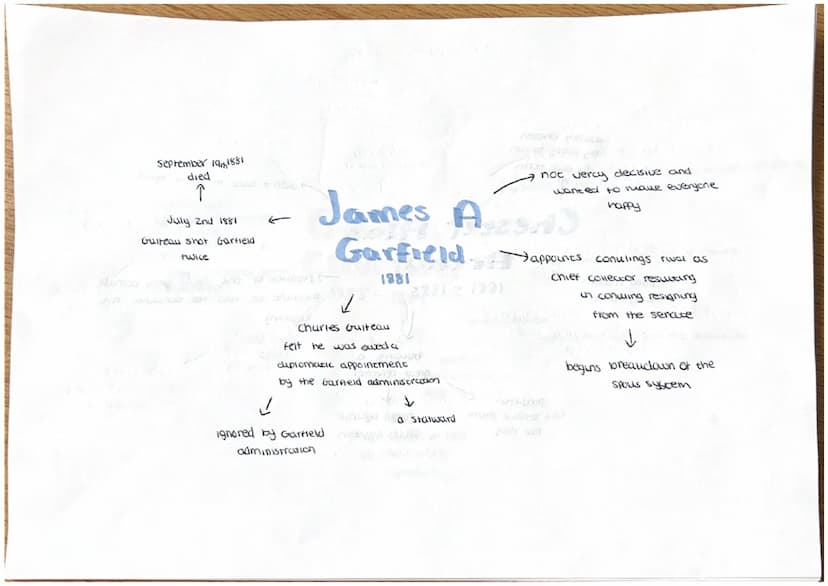 James A
Garfield
1881
not very decisive and
wanted to make everyone
happy
appoints conklings rival as
chief collector resulting
in conkling resigning
from the senate
begins breakdown of the
spoils system
Charles Guiteau
felt he was owed a
diplomatic appointment
by the Garfield administration
a stalward
ignored by Garfield
administration
July 2nd 1881
Guiteau shot Garfield
twice
September 19th 1881
died